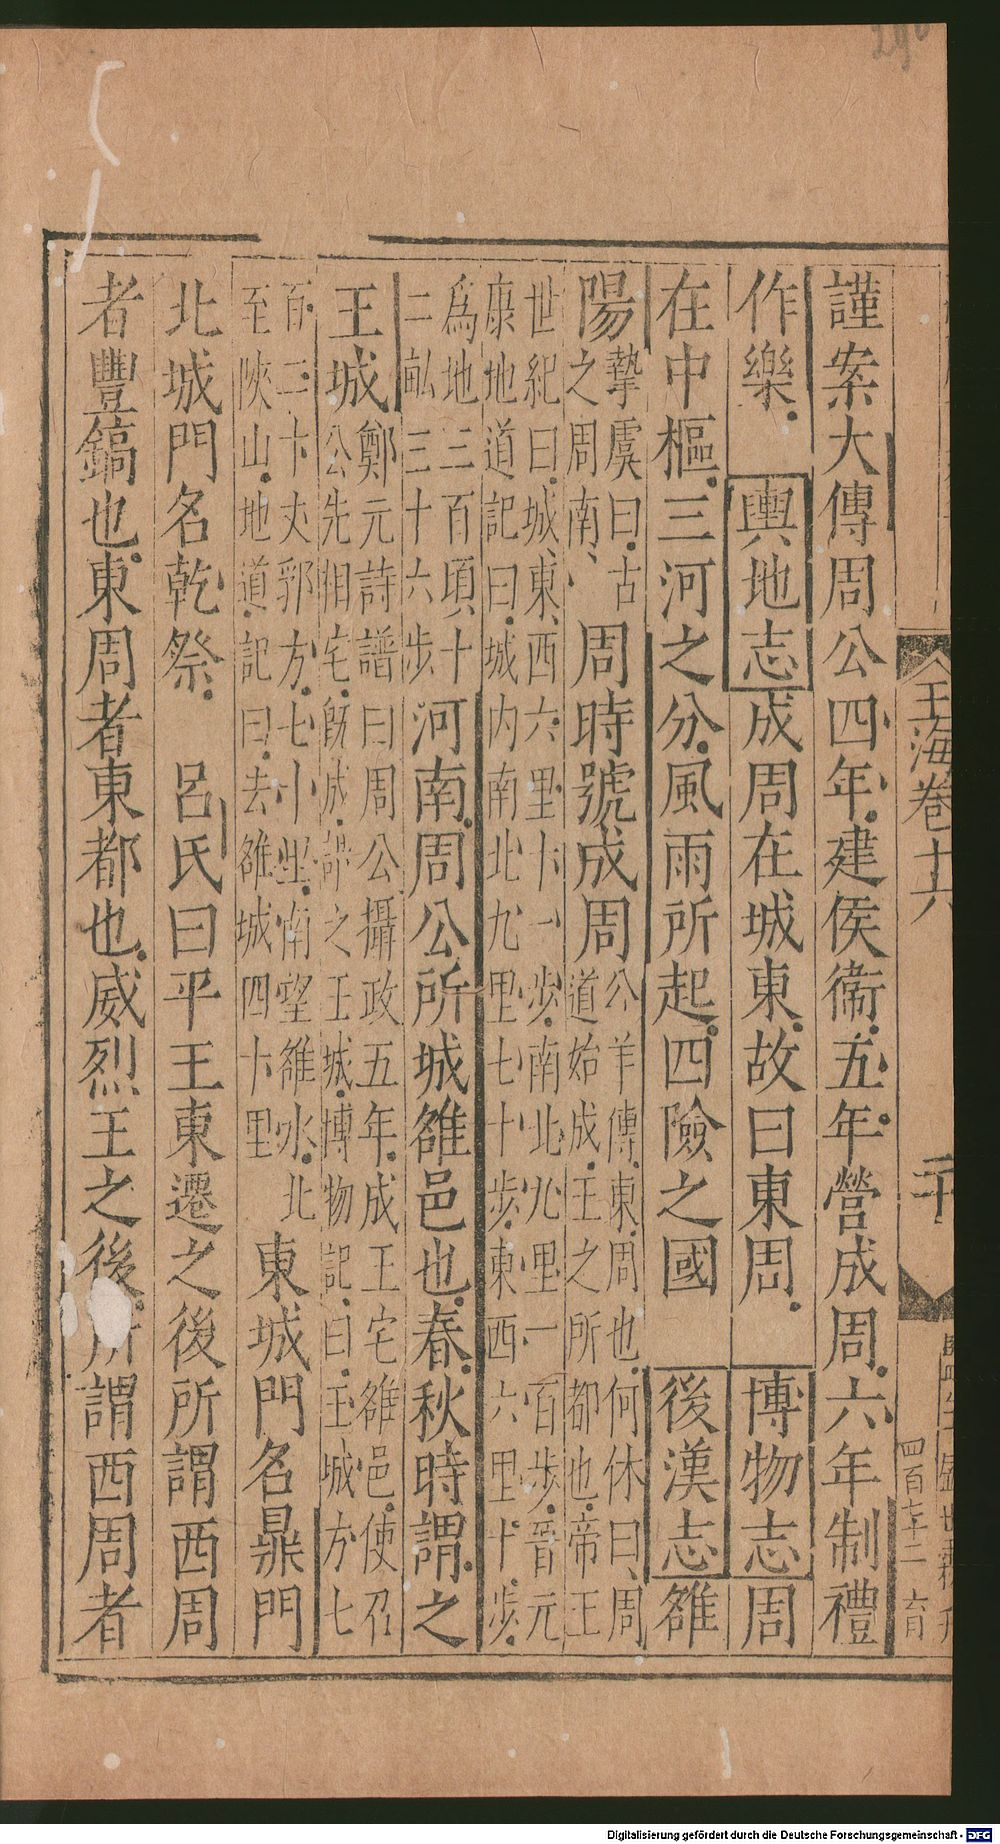 謹案大傳周公四年建侯衞五年營成周六年制禮
作樂 輿地志成周在城東故曰東周 博物志周
在中樞三河之分風雨所起四險之國 後漢志雒
陽摯虞曰古之周南 周時號成周公羊傳東周也何休曰周道始成王之所都也帝王
世紀曰城東西六里十一步南北九里一百步晉元
康地道記曰城内南北九里七十步東西六里十步
爲地三百頃十二畝三十六步 河南周公所城雒邑也春秋時謂之
王城鄭元詩譜曰周公攝政五年成王宅雒邑使召公先相宅旣成謂之王城博物記曰王城方七
百二十丈郛方七十里南望雒水北至陜山地道記曰去雒城四十里 東城門名鼎門
北城門名乾祭 呂氏曰平王東遷之後所謂西周
者豐鎬也東周者東都也威烈王之後所謂西周者
玉海卷十六
二十
四百七十二
Digitalisierung gefördert durch die Deutsche Forschungsgemeinschaft - DFG